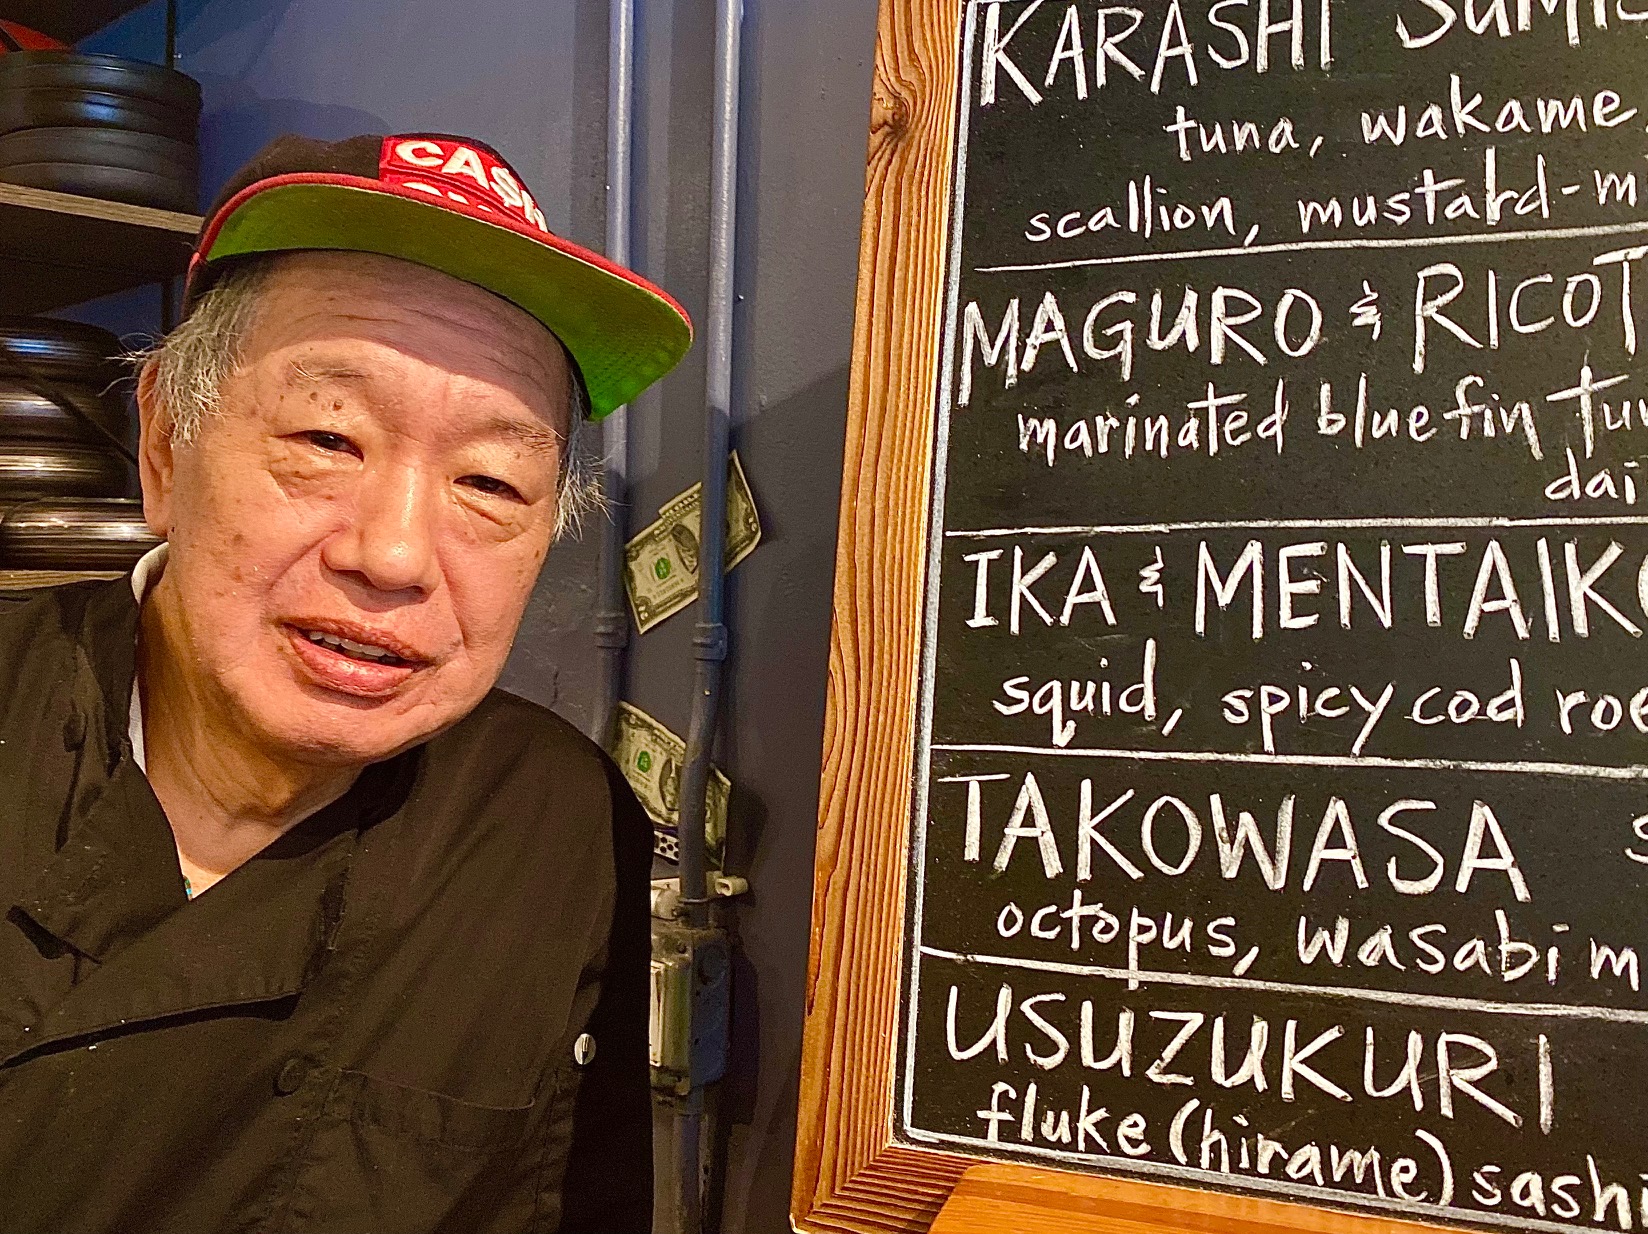 CASH
KARASHI
tuna, wakame
scallion, mustard-m
MAGURO & RICOT
marinated bluefin tu
dai
IKA & MENTAIKO
squid, spicy cod roe
TAKOWASA S
octopus, wasabi m
USUZUKURI
fluke (hirame) sashi